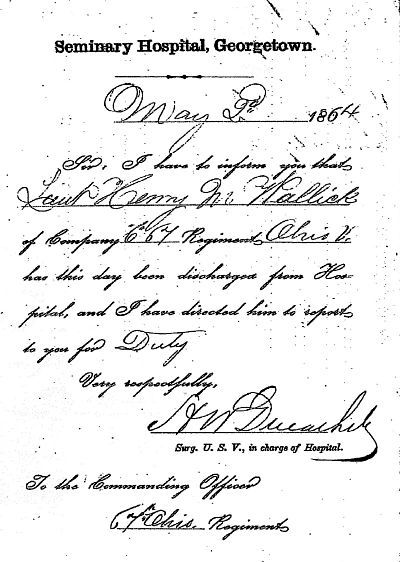 Seminary Hospital, Georgetown.
May 2d 1864
Sir, I have to inform you that
Lieut Henry M Wallick
of Company 67 Regiment Ohio V.
has this day been discharged from Hos-
pital, and I have directed him to report
to you for Duty
Very respectfully,
H W Ducachet
Surg. U. S. V., in charge of Hospital.
To the Commanding Officer
67th Ohio Regiment